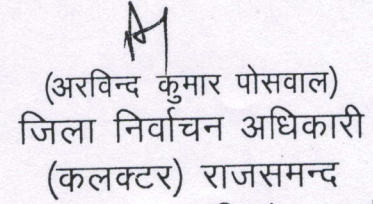 (अरविन्द कुमार पोसवाल)
जिला निर्वाचन अधिकारी
(कलक्टर) राजसमन्द